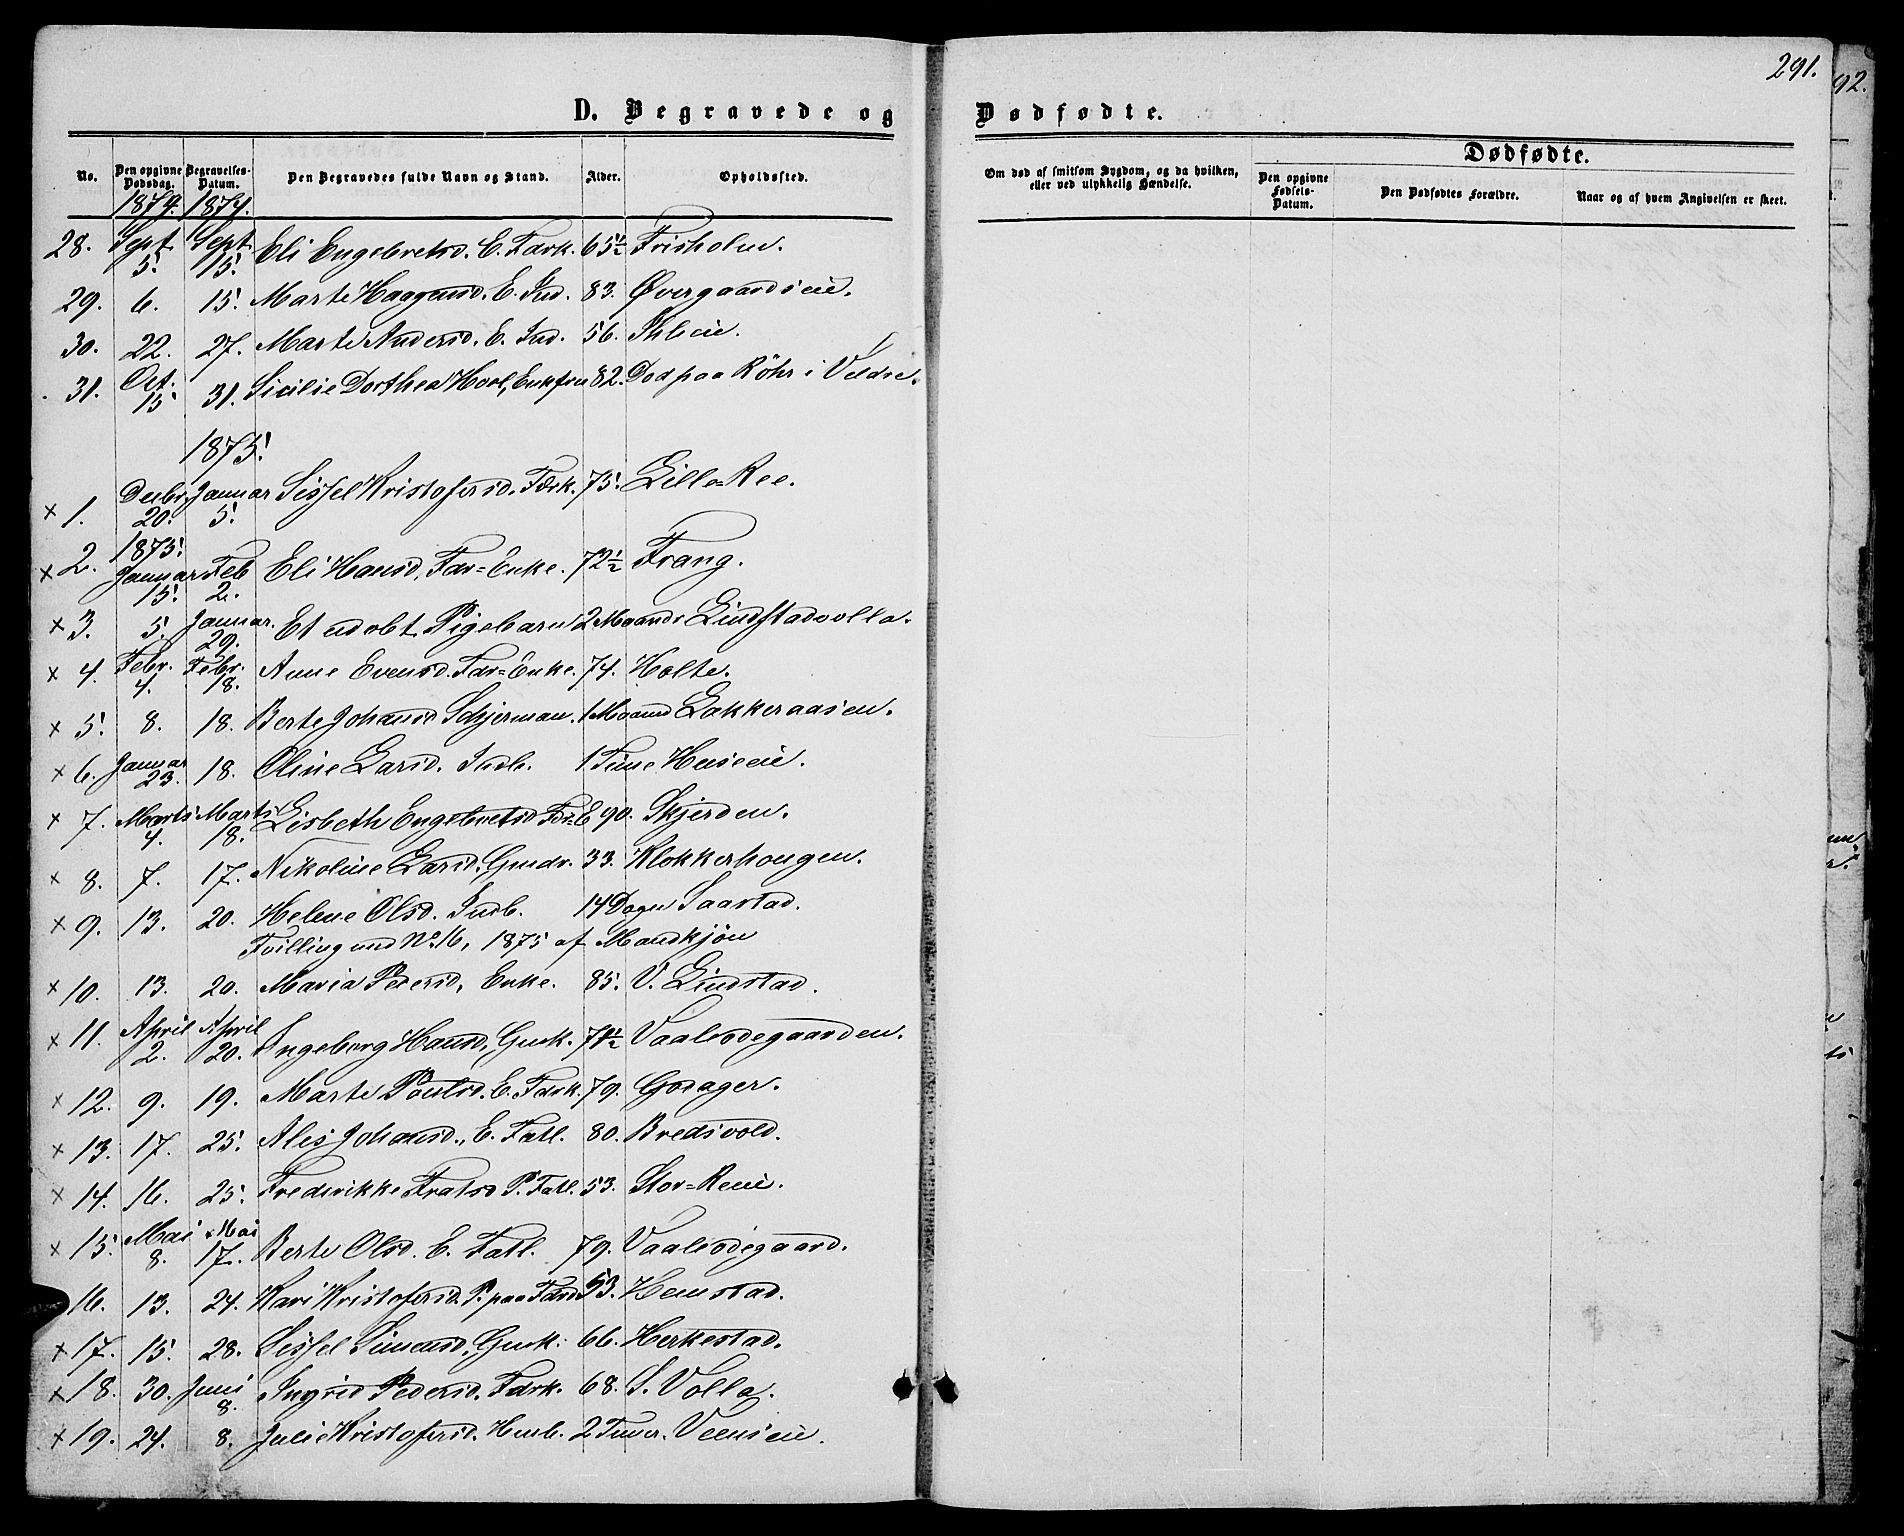 291.
92.
D. Begravede og Dødfødte.
No. Den opgivne Dødsdag. Begravelses-Datum. Den Begravedes fulde Navn og Stand. Alder. Opholdssted. Om død af smitsom Sygdom, og da hvilken, eller ved ulykkelig Hændelse. Dødfødte. Den opgivne Fødsels-Datum. Den Dødfødtes Forældre. Naar og af hvem Angivelsen er skeet.
1874. 1874.
28. Sept. 5. Sept. 15. Eli Engebretsd. E. Fdrk. 65½ Frisholm.
29. 6. 15. Marte Haagensd. E. Ind. 83. Øvergaardseie.
30. 22. 27. Marte Andersd. E. Ind. 56.
31. Oct. 15 31. Sicilie Dorthea Hoel, Enkefru 82. Død paa Röhr i Veldre.
1875.
1. Decbr. 20. Januar 5. Sissel Kristofersd. Fdrk. 75. Lille-Ree.
2. 1875. Januar 15. Feb 2. Eli Hansd, Fdr=Enke. 72½ Frang.
3. 5. Januar 29. Et udøbt Pigebarn 2 Maaneder Lindstadvolla.
4. Febr. 4. Febr. 18. Anne Evensd. Fdr=Enke. 74. Holte.
5. 8. 18. Berte Johansd Schjerman. 1 Maaned Lakkeraasen.
6. Januar 23. 18. Oline Larsd. Indb. 1 Time Huseeie.
7. Marts 4. Marts 18. Lisbeth Engebretsd Fdr=E 90. Skjerden.
8. 7. 17. Nikoline Larsd. Gmdr. 33. Klokkerhougen.
9. 13. 20. Helene Olsd. Indb. 14 Dager Saastad.
Tvilling med No 16, 1875 af Mandkjön
10. 13. 20. Maria Pedersd, Enke. 85. V. Lindstad.
11. April 2. April 20. Ingeborg Hansd, Gmk. 71½ Vaaleødegaarden.
12. 9. 19. Marte Poulsd. E. Fdrk. 79. Godager.
13. 17. 25. Alis Johansd., E. Fatl. 80. Bredsvold.
14. 16. 25. Frederikke Fratsd P. Fatl. 53. Stor=Reeie.
15. Mai 8. Mai 17. Berte Olsd. E. Fatl. 79. Vaaleødegaard.
16. 13. 24. Kari Kristofersd. P. paa Fdrd 53. Hemstad.
17. 15. 28. Sissel Simensd, Gmk. 66. Herkestad.
18. 30. Juni 8. Ingrid Pedersd. Fdrk. 68. S. Volla.
19. 24. 8. Julie Kristofersd. Husb. 2 Timer. Veenseie.